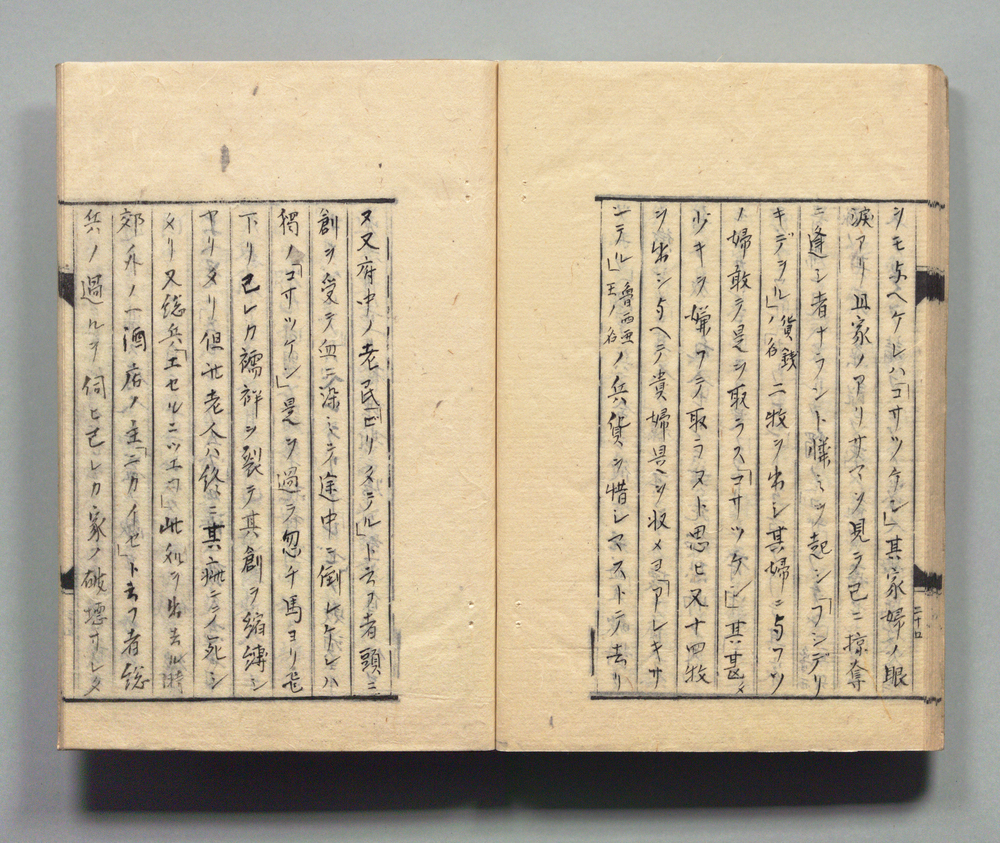 シモ与ヘケレハ「コサツケン」其家婦ノ眼
涙アリ且家ノアリサマヲ見テ己ニ掠奪
ニ逢シ者ナラント憐ミヲ起シ「フンデリ
キデヲル」貨銭ノ名 二枚ヲ出シ其婦ニ与フ
ノ婦敢テ是ヲ取ラス「コサツケン」其甚タ
少キヲ嫌フテ取ラヌト思ヒ又十四枚
ヲ出シ与ヘテ貴婦是ヲ収メヨ「アレキサ
ンテル」魯西亜王ノ名ノ兵貨ヲ惜シマストテ去リ
ヌ又府中ノ老民「ピリメテル」ト云フ者頭ニ
創ヲ受テ血ニ染ミテ途中ニ倒レケレハ
獨ノ「コサツケン」是ヲ過ラ忽チ馬ヨリ飛
下リ己レカ襦袢ヲ裂テ其創ヲ縮縛シ
ヤリタリ但此老人ハ終ニ其痛ニテ死シ
タリ又総兵「エセルニツエフ」此利ヲ出去ル時
郊外ノ一酒店ノ主「ニカイセ」ト云フ者総
兵ノ過ルヲ伺ヒ己レカ家ノ破壊サレタ